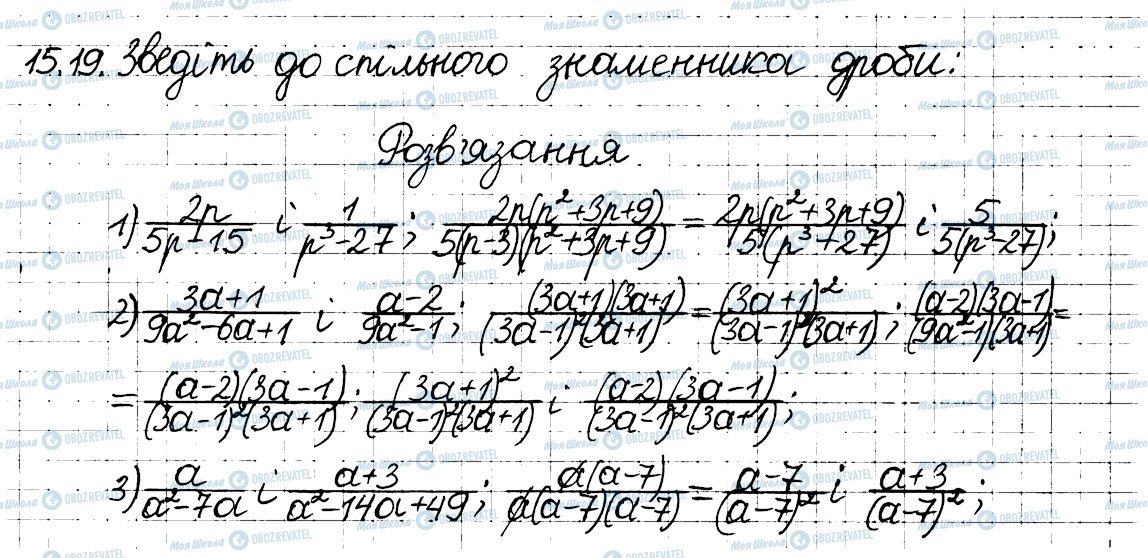 15.19. Зведіть до спільного знаменника дроби:
Розв'язання
1) 2p/(5p-15) і 1/(p³-27); 2p(p²+3p+9)/(5(p-3)(p²+3p+9)) = 2p(p²+3p+9)/(5(p³+27)) і 5/(5(p³-27));
2) (3a+1)/(9a²-6a+1) і (a-2)/(9a²-1); (3a+1)(3a+1)/((3a-1)²(3a+1)) = (3a+1)²/((3a-1)²(3a+1)); (a-2)(3a-1)/((9a²-1)(3a-1)) =
= (a-2)(3a-1)/((3a-1)²(3a+1)); (3a+1)²/((3a-1)²(3a+1)) і (a-2)(3a-1)/((3a-1)²(3a+1));
3) a/(a²-7a) і (a+3)/(a²-14a+49); a(a-7)/(a(a-7)(a-7)) = (a-7)/(a-7)² і (a+3)/(a-7)²;